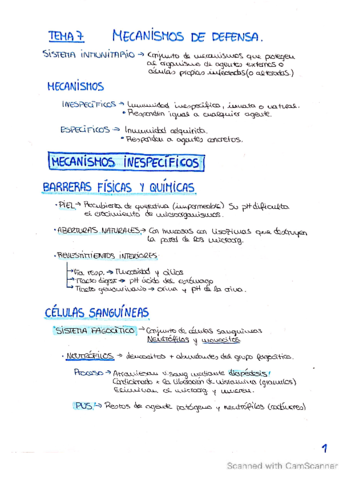 TEMA 7 MECANISMOS DE DEFENSA.
SISTEMA INMUNITARIO → Conjunto de mecanismos que protegen
al organismo de agentes externos o
células propias infectadas (o alteradas.)
MECANISMOS
INESPECÍFICOS → Inmunidad inespecífica, innata o natural.
• Responden igual a cualquier agente.
ESPECÍFICOS → Inmunidad adquirida.
• Responden a agentes concretos.
MECANISMOS INESPECÍFICOS
BARRERAS FÍSICAS Y QUÍMICAS.
• PIEL → Recubierta de queratina (impermeable) Su pH dificulta
el crecimiento de microorganismos.
• ABERTURAS NATURALES → Con mucosas con lisozimas que destruyen
la pared de los microorg.
• REVESTIMIENTOS INTERIORES
→ Vía resp. → Mucosidad y cilios
→ Tracto digest → pH ácido del estómago
→ Tracto genitourinario → orina y pH de la orina.
CÉLULAS SANGUÍNEAS
SISTEMA FAGOCÍTICO → Conjunto de células sanguíneas
Neutrófilos y monocitos
• NEUTRÓFILOS → leucocitos + abundantes del grupo fagocítico.
Proceso → Atraviesan v. sang mediante diapédesis
Condicionado a la liberación de histamina (gránulos)
Eliminan el microorg y mueren.
PUS → Restos de agente patógeno y neutrófilos (cadáveres)
1
Scanned with CamScanner